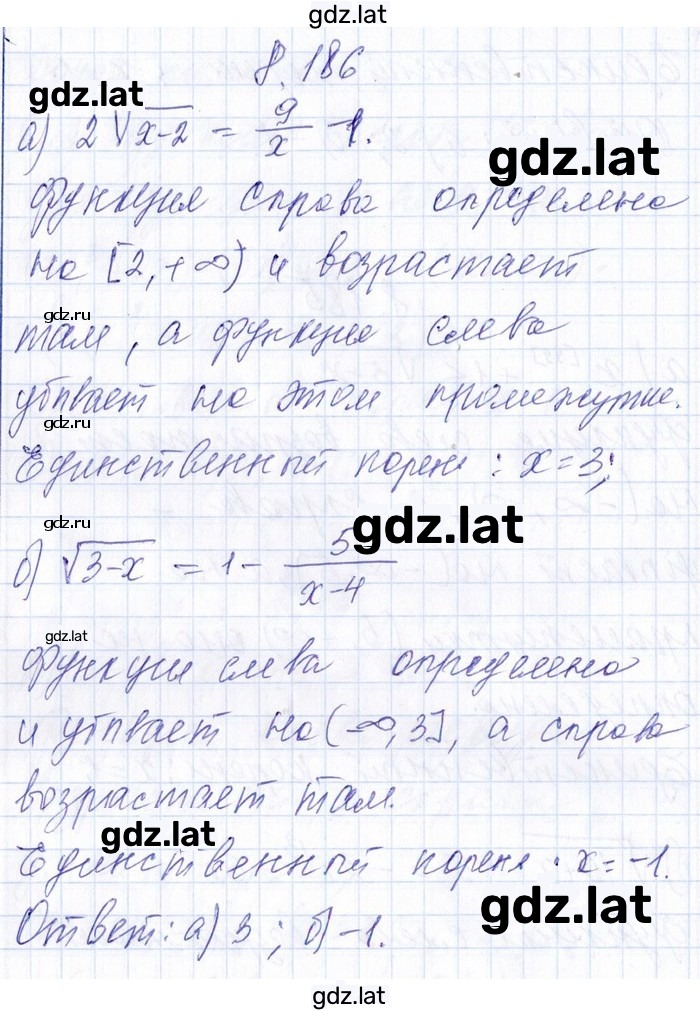 gdz.lat
8.186
gdz.lat
а) 2√(x-2) = 9/x - 1.
gdz.lat
Функция справа определена
на [2,+∞) и возрастает
gdz.ru
там, а функция слева
убывает на этом промежутке.
gdz.ru
Единственный корень: x=3;
gdz.ru
gdz.lat
б) √(3-x) = 1 - 5/(x-4)
gdz.lat
Функция слева определена
и убывает на (-∞,3], а справа
возрастает там.
gdz.lat
Единственный корень: x=-1.
gdz.lat
Ответ: а) 3; б) -1.
gdz.lat